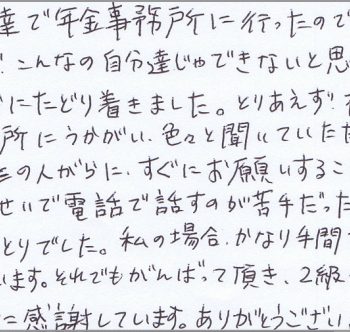 達で年金事務所に行ったので
こんなの自分達じゃできないと思
にたどり着きました。とりあえず!
所にうかがい、色々と聞いていただ
の人がらに、すぐにお願いするこ
せいで電話で話すのが苦手だった
とりでした。私の場合、かなり手間
います。それでもがんばって頂き、2級
に感謝しています。ありがとうござい